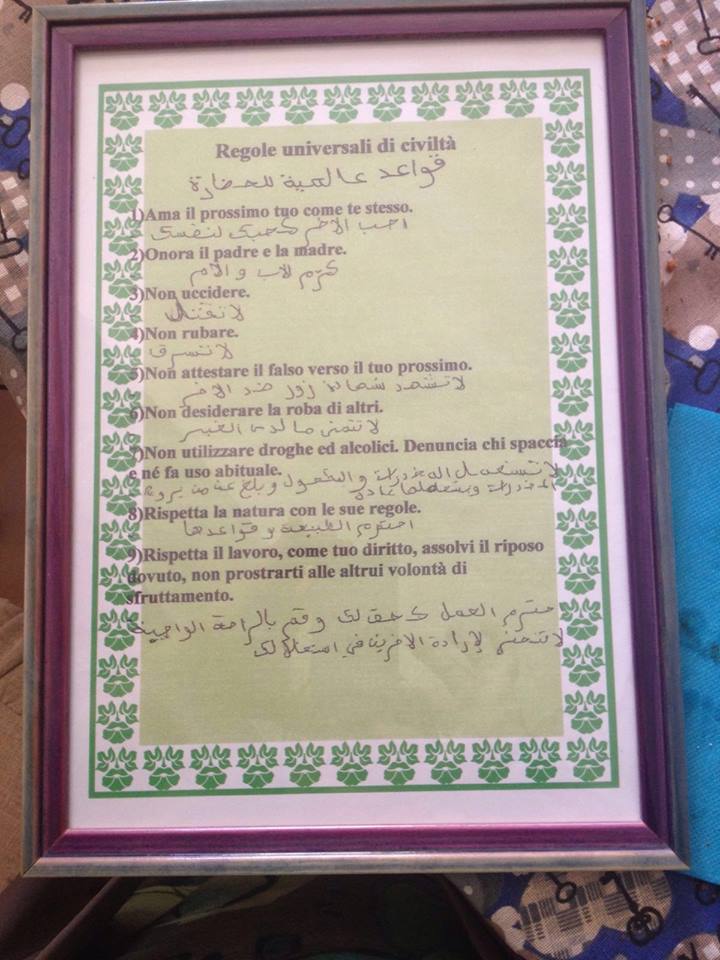 Regole universali di civiltà
قواعد عالمية للحضارة
1)Ama il prossimo tuo come te stesso.
احب الاخر كحبك لنفسك
2)Onora il padre e la madre.
كرّم الاب و الام
3)Non uccidere.
لا تقتل
4)Non rubare.
لا تسرق
5)Non attestare il falso verso il tuo prossimo.
لا تشهد شهادة زور ضد الاخر
6)Non desiderare la roba di altri.
لا تتمنى ما لدى الغير
7)Non utilizzare droghe ed alcolici. Denuncia chi spaccia
e né fa uso abituale.
لا تستعمل المخدرات و الكحول و بلغ عن من يروج
المخدرات ويستعملها عادة
8)Rispetta la natura con le sue regole.
احترم الطبيعة و قواعدها
9)Rispetta il lavoro, come tuo diritto, assolvi il riposo
dovuto, non prostrarti alle altrui volontà di
sfruttamento.
حترم العمل كحق لك و قم بالراحة الواجبة
لا تنحني لإرادة الاخرين في استغلالك